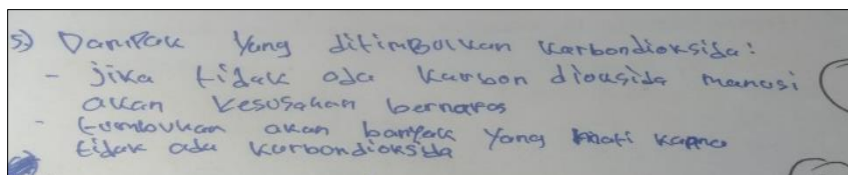 5.) Dampak yang ditimbulkan karbondioksida:
- jika tidak ada karbon dioksida manusi
akan kesusahan bernapas
- tumbuhan akan banyak yang mati karna
tidak ada karbondioksida